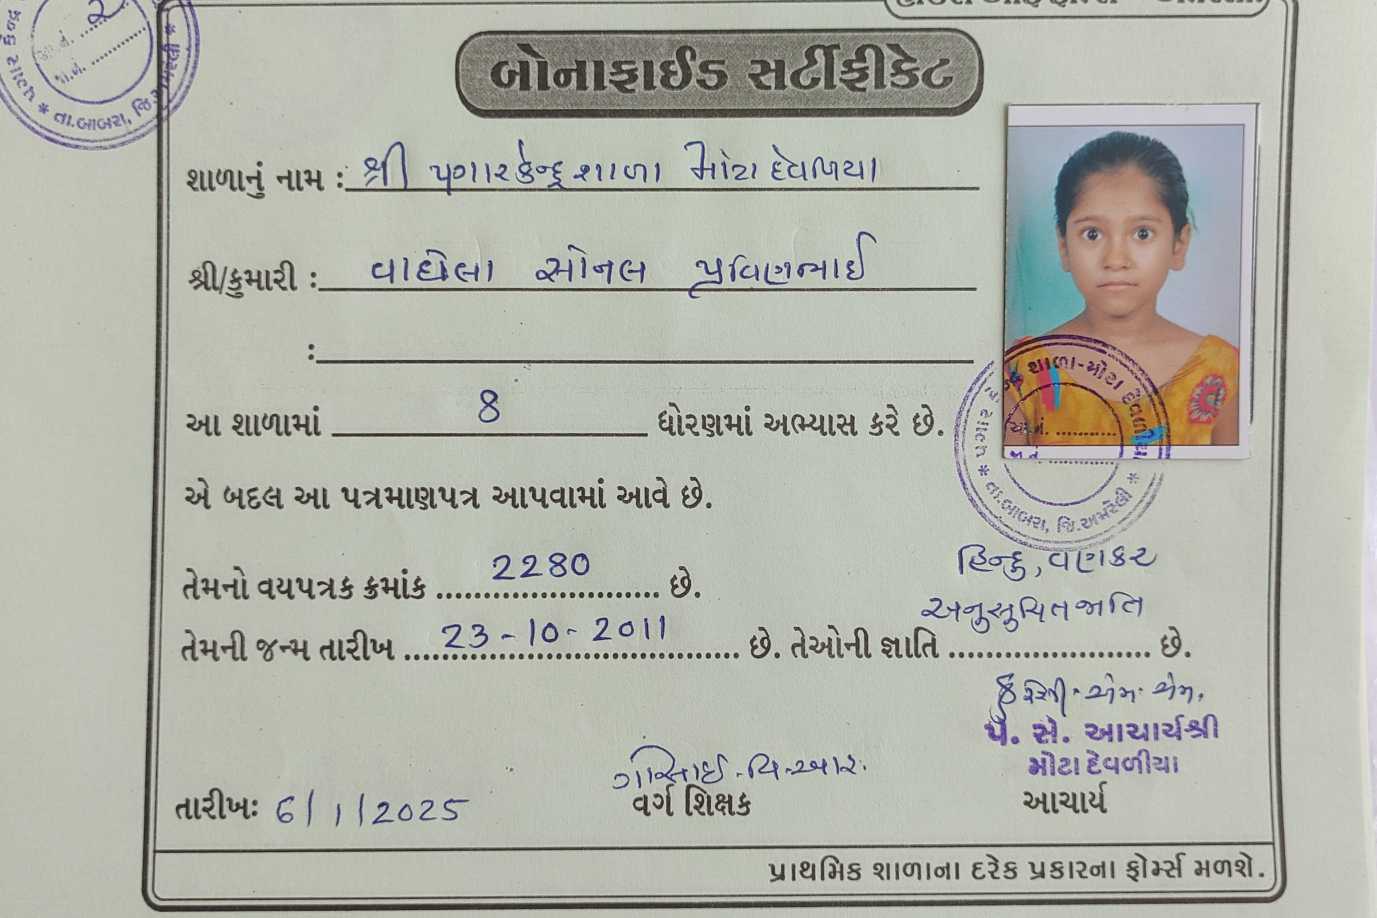 બોનાફાઈડ સર્ટીફીકેટ
શાળાનું નામ : શ્રી પગારકેન્દ્ર શાળા મોટા દેવળિયા
શ્રી/કુમારી : વાઘેલા સોનલ પ્રવિણભાઈ
:
આ શાળામાં 8 ધોરણમાં અભ્યાસ કરે છે.
એ બદલ આ પત્રમાણપત્ર આપવામાં આવે છે.
તેમનો વયપત્રક ક્રમાંક 2280 છે.
હિન્દુ, વણકર
અનુસુચિતજાતિ
તેમની જન્મ તારીખ 23-10-2011 છે. તેઓની જ્ઞાતિ છે.
પે. સે. આચાર્યશ્રી
મોટા દેવળીયા
તારીખઃ 6/1/2025 વર્ગ શિક્ષક આચાર્ય
પ્રાથમિક શાળાના દરેક પ્રકારના ફોર્મ્સ મળશે.
તા.બાબરા, જિ.અમરેલી
શાળા-મોટા દેવળીયા
તા.બાબરા, જિ.અમરેલી